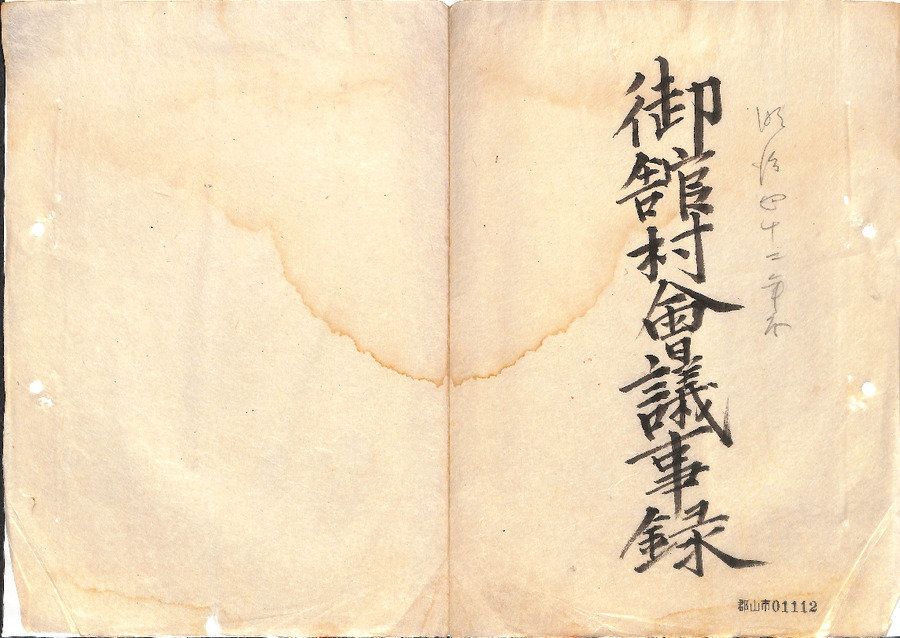 明治四十二年度
御舘村會議事録
郡山市01112